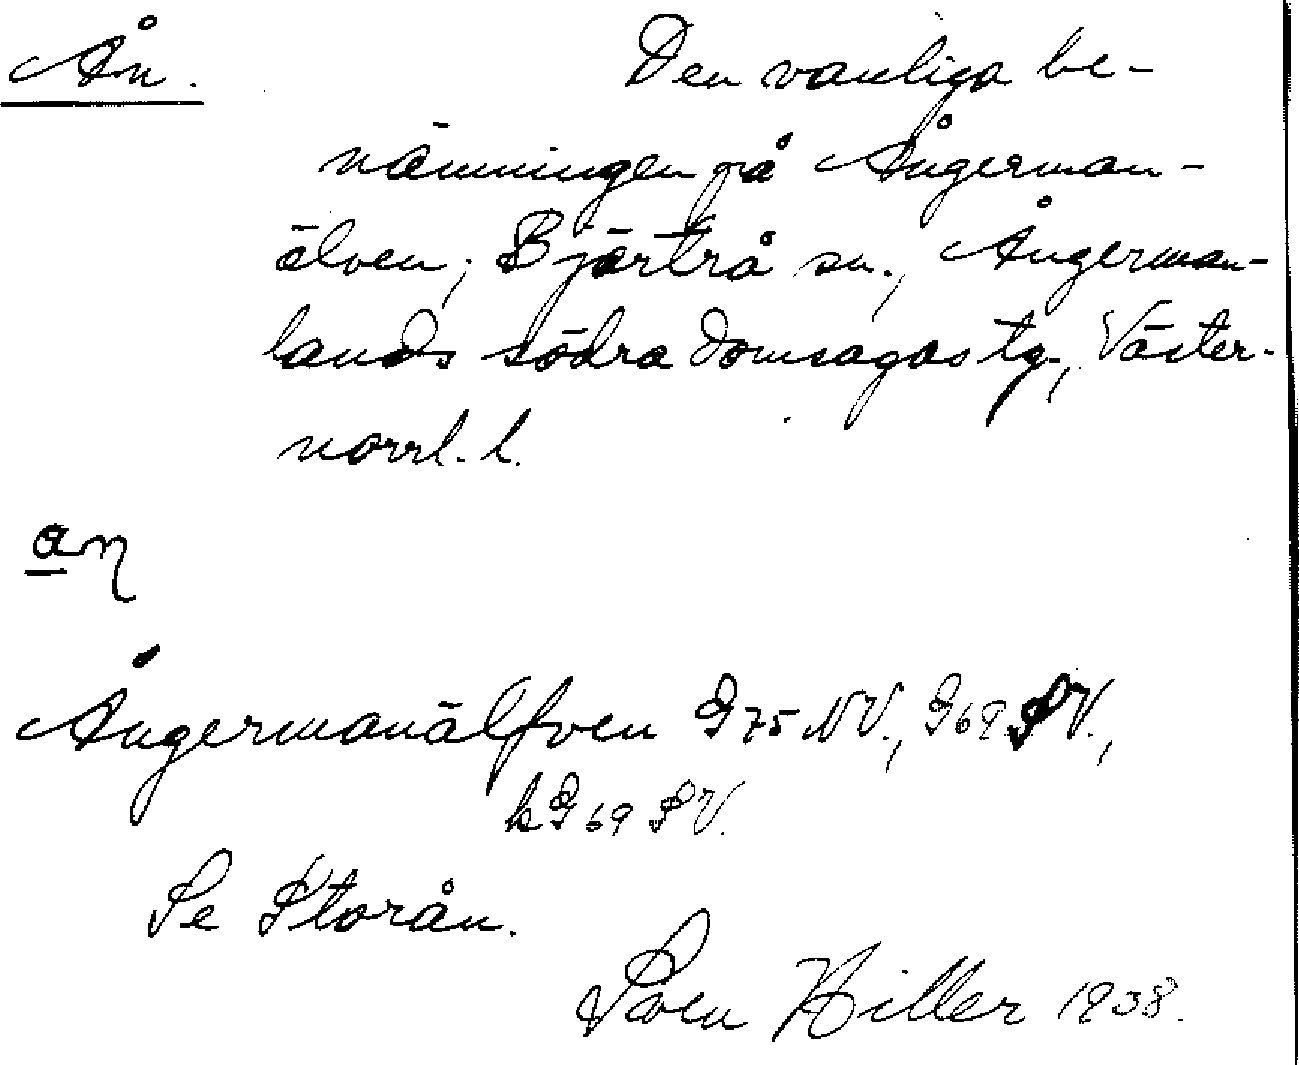 Ån. Den vanliga be-
nämningen på Ångerman-
älven; Bjärtrå sn., Ångerman-
lands södra domsagas tg., Väster-
norrl. l.
an̡
Ångermanälfven G 75 NV., G 69 SV.,
k G 69 SV.
Se Storån.
Sven Hiller 1938.